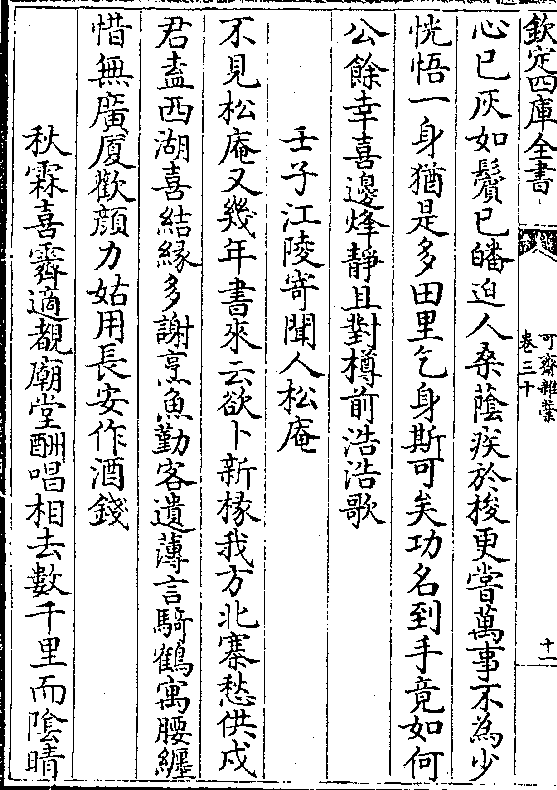 欽定四庫全書
可齋雜藁
卷三十
十一
心已灰如鬢已皤迫人桑蔭疾於梭更嘗萬事不為少
恍悟一身猶是多田里乞身斯可矣功名到手竟如何
公餘幸喜邊烽静且對樽前浩浩歌
壬子江陵寄聞人松庵
不見松庵又幾年書來云欲卜新椽我方北寨愁供戍
君盍西湖喜結緣多謝烹魚勤客遺薄言騎鶴寓腰纏
惜無廣厦歡顔力姑用長安作酒錢
秋霖喜霽適覩廟堂酬唱相去數千里而隂晴